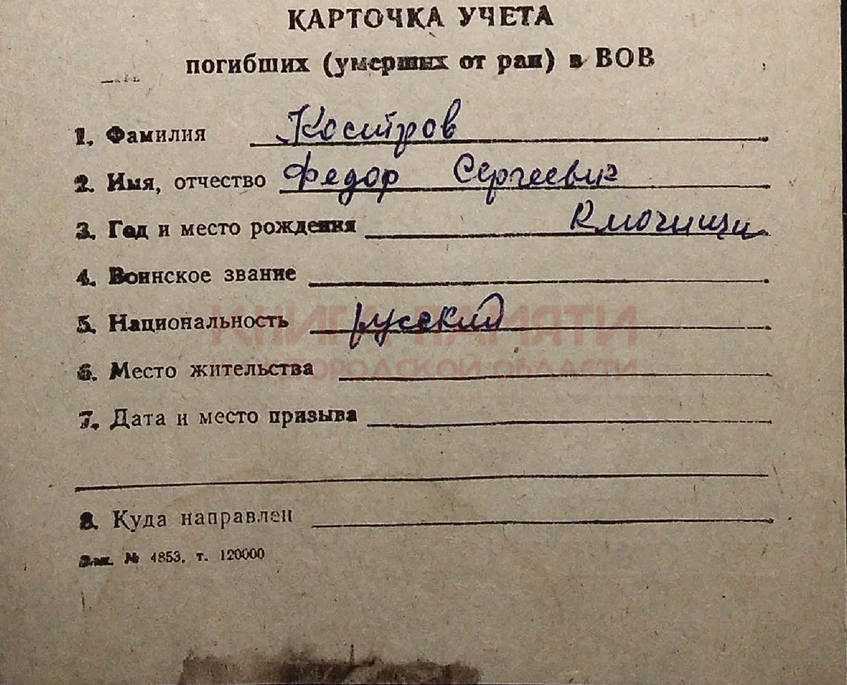 КАРТОЧКА УЧЕТА
погибших (умерших от ран) в ВОВ
1. Фамилия Костров
2. Имя, отчество Федор Сергеевич
3. Год и место рождения Ключищи
4. Воинское звание
5. Национальность русский
КНИГА ПАМЯТИ
6. Место жительства
НИЖЕГОРОДСКОЙ ОБЛАСТИ
7. Дата и место призыва
8. Куда направлен
Зак. № 4853, т. 120000